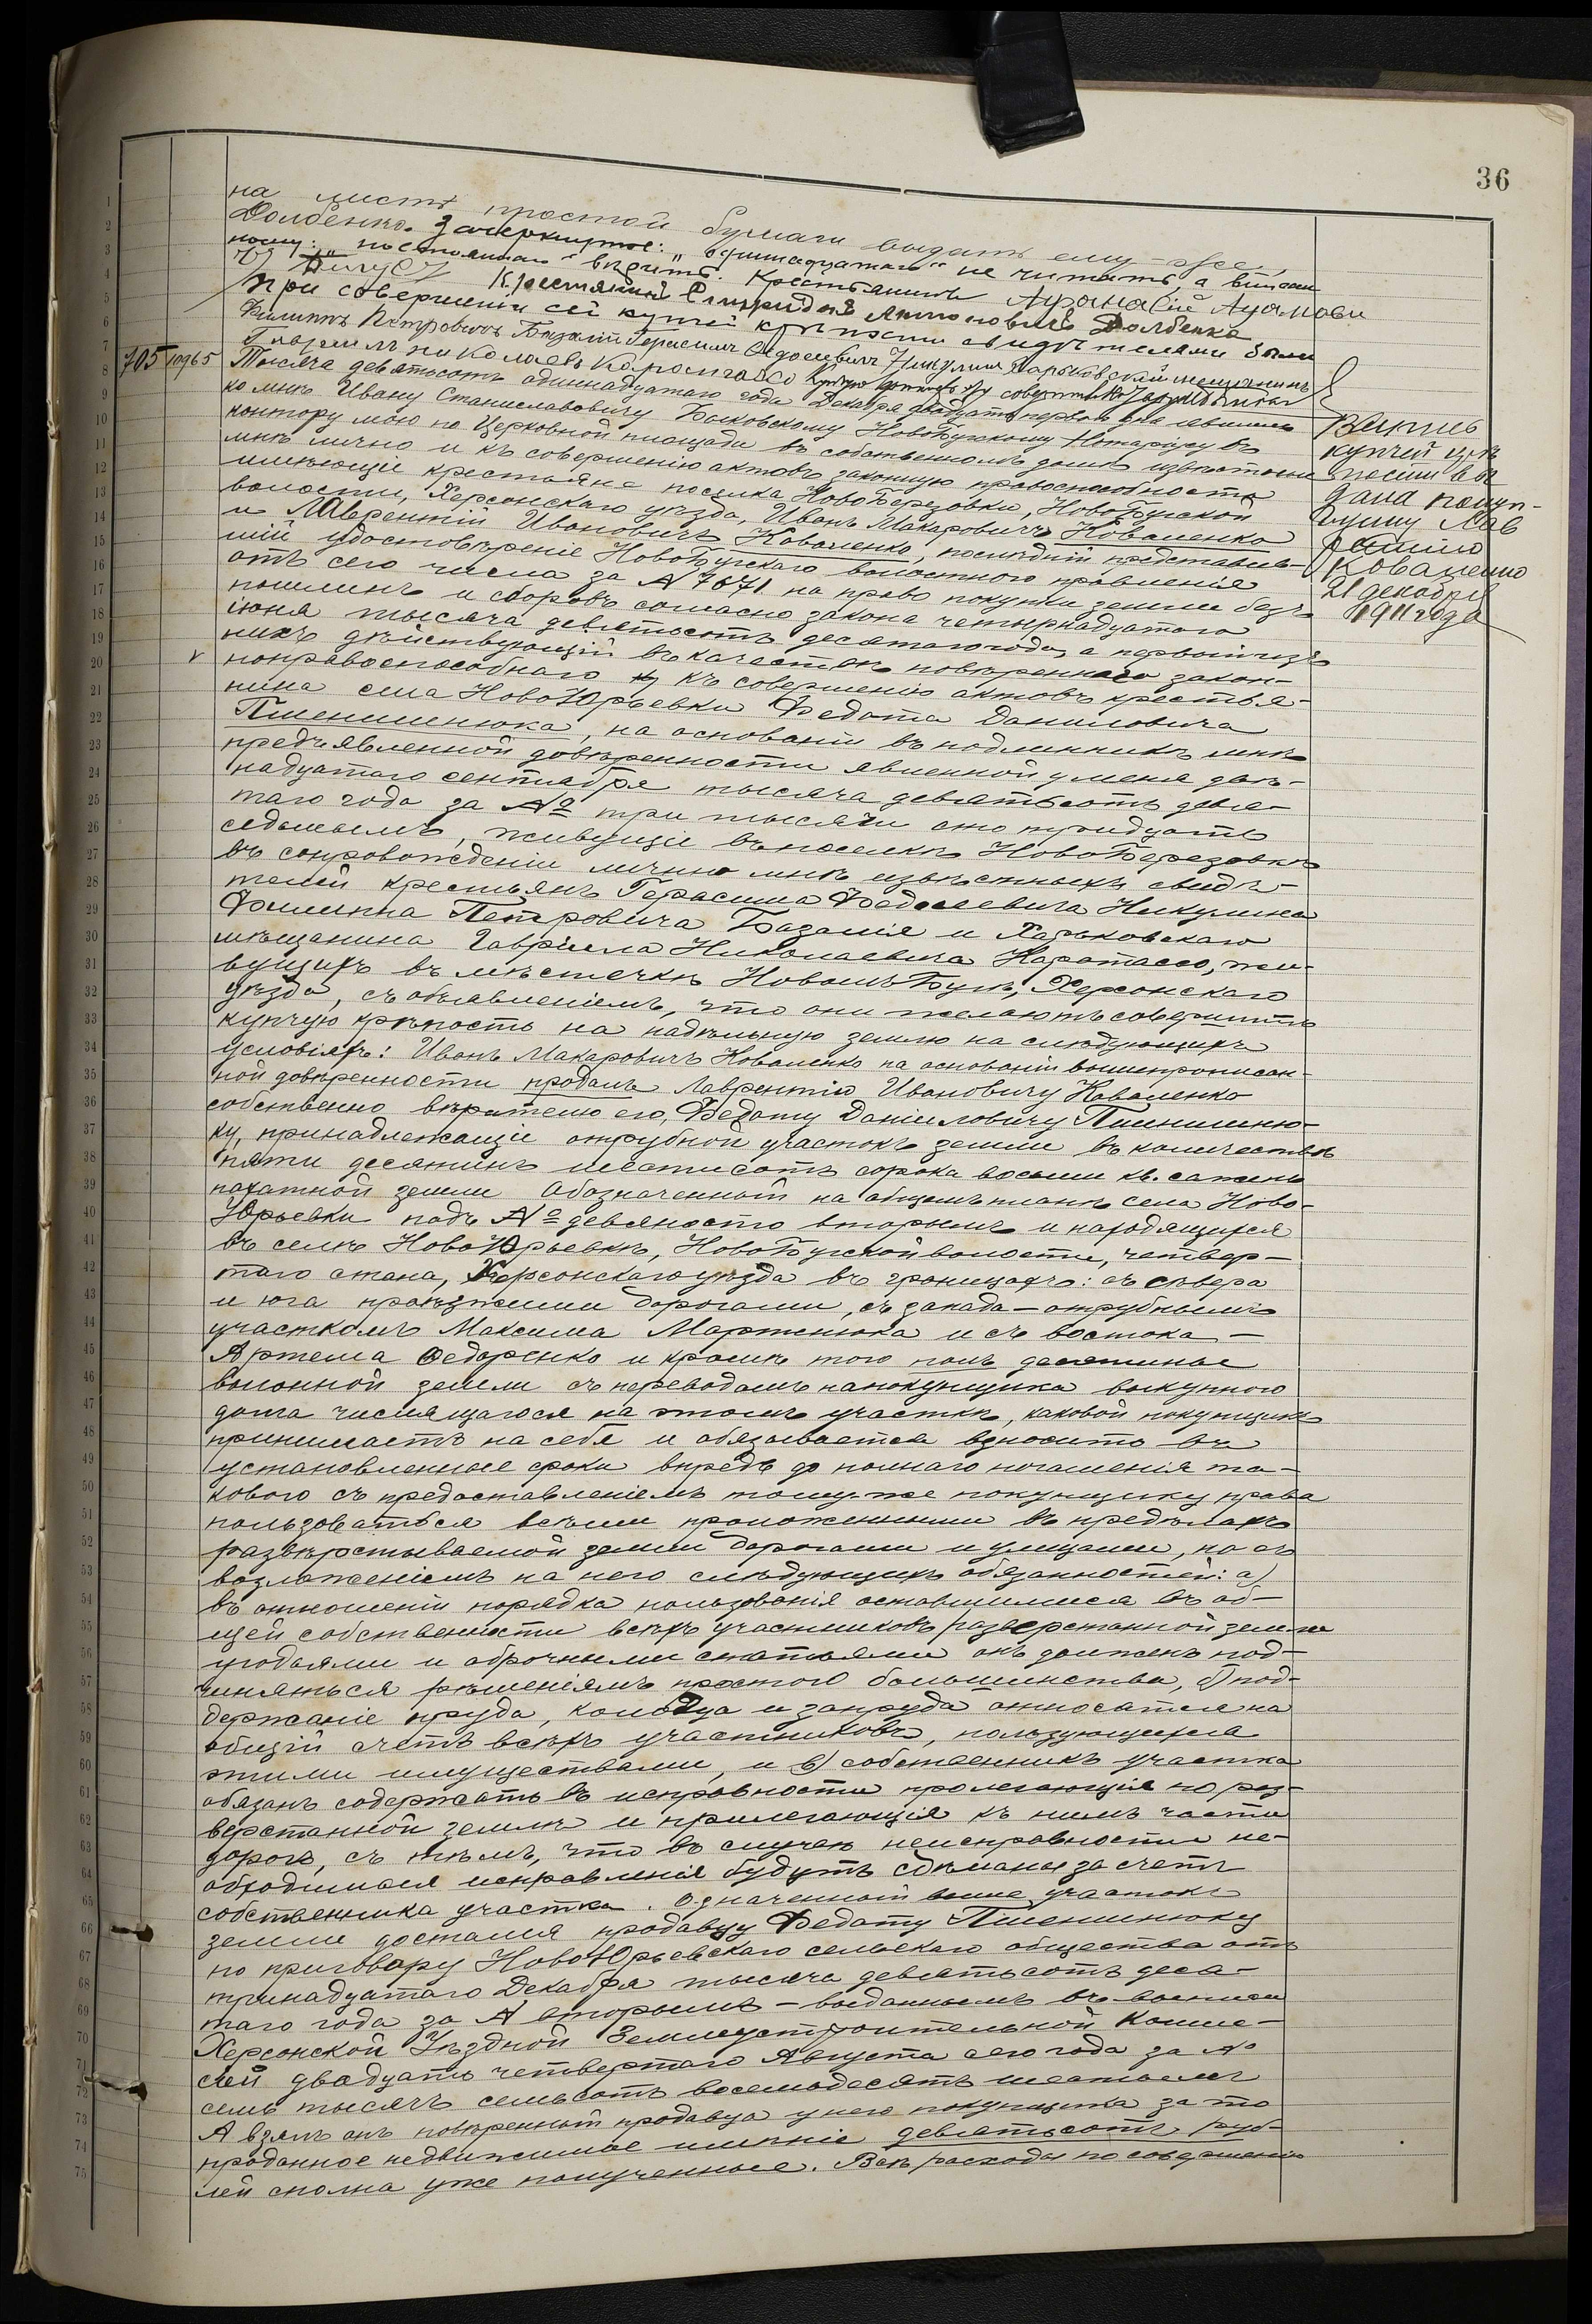 36
на листѣ простой бумаги выдать ему-же
Долбенко. Зачеркнутое: "одиннадцатаго" не читать, а вписан
ному: "постояннаго" вѣрить. Крестьянинъ Аѳанасій
Крестьянинъ Спиридонъ Антоновичъ Долбенко
При совершеніи сей купчей крѣпости свидѣтелями были
Филиппъ Петровичъ Базалій Герасимъ Ѳедосеевичъ Никулинъ Харьковскій мещанинъ
705 10965
Гавриилъ Николаевъ
Тысяча девятьсотъ одиннадцатаго года Декабря двадцать перваго дня явились
ко мнѣ Ивану Станиславовичу Быковскому НовоБугскому Нотаріусу въ
контору мою на Церковной площади въ собственномъ домѣ извѣстные
мнѣ лично и къ совершенію актовъ законную правоспособность
имѣющіе крестьяне поселка НовоБерезовки, НовоБугской
волости, Херсонскаго уѣзда, Иванъ Макаровичъ Коваленко
и Лаврентій Ивановичъ Коваленко, послѣдній представив-
шій удостовѣреніе НовоБугскаго волостного правленія
отъ сего числа за № 7671 на право покупки земли безъ
пошлинъ и сборовъ согласно закона четырнадцатаго
іюня тысяча девятьсотъ десятаго года, а первый изъ
нихъ дѣйствующій въ качествѣ повѣреннаго закон-
v
ноправоспособнаго къ совершенію актовъ крестья-
нина села НовоЮрьевки Ѳедота Даниловича
Пшенишнюка, на основаніи въ подлинникѣ мнѣ
предъявленной довѣренности явленной у меня двѣ-
надцатаго сентября тысяча девятьсотъ девя-
таго года за № три тысячи сто тридцать
седьмымъ, живущіе въ поселкѣ НовоБерезовкѣ
въ сопровожденіи лично мнѣ извѣстныхъ свидѣ-
телей крестьянъ Герасима Ѳедосеевича Никулина
Филиппа Петровича Базалія и Харьковскаго
мѣщанина Гавріила Николаевича Каратассо, жи-
вущихъ въ мѣстечкѣ Новомъ Бугѣ, Херсонскаго
уѣзда, съ объявленіемъ, что они желаютъ совершить
купчую крѣпость на надѣльную землю на слѣдующихъ
условіяхъ: Иванъ Макаровичъ Коваленко на основаніи вышепрописан-
ной довѣренности продалъ Лаврентію Ивановичу Коваленко
собственно вѣрителю его, Ѳедоту Даніиловичу Пшенишню-
ку, принадлежащіе отрубной участокъ земли въ количествѣ
пяти десятинъ шестисотъ сорока восьми кв. сажень
пахатной земли Обозначенный на общемъ планѣ села Ново-
Юрьевки подъ № девяносто вторымъ и находящуюся
въ селѣ НовоЮрьевкѣ, НовоБугской волости, четвер-
таго стана, Херсонскаго уѣзда въ границахъ: съ сѣвера
и юга проѣзжими дорогами, съ запада – отрубнымъ
участкомъ Максима Мартенюка и съ востока –
Артема Ѳедоренко и кромѣ того полъ десятины
выгонной земли съ переводомъ на покупщика выкупного
долга числящагося на этомъ участкѣ, каковой покупщикъ
принимаетъ на себя и обязывается взносить въ
установленные сроки впредь до полнаго погашенія та-
кового съ предоставленіемъ тому-же покупщику права
пользоваться всѣми проложенными въ предѣлахъ
развѣрстываемой земли дорогами и улицами, но съ
возложеніемъ на него слѣдующихъ обязанностей: а)
въ отношеніи порядка пользованія оставшимися въ об-
щей собственности всѣхъ участниковъ разверстанной земли
угодьями и оброчными статьями онъ долженъ под-
чиняться рѣшеніямъ простого большинства, б) под-
держаніе пруда, колодца и запруда относятся на
общій счетъ всѣхъ участниковъ, пользующихся
этими имуществами, и в) собственникъ участка
обязанъ содержать въ исправности пролегающія по раз-
верстанной землѣ и прилегающія къ нимъ части
дорогъ, съ тѣмъ, что въ случаѣ неисправности не-
обходимыя исправленія будутъ сдѣланы за счетъ
собственника участка. Означенный выше участокъ
земли достался продавцу Ѳедоту Пшенишнюку
по приговору НовоЮрьевскаго сельскаго общества отъ
тринадцатаго Декабря тысяча девятьсотъ деся-
таго года за № вторымъ – выданнымъ въ выписи
Херсонской Уѣздной Землеустроительной Комис-
сіей двадцать четвертаго Августа сего года за №
семь тысячъ семьсотъ восемьдесятъ шестымъ
А взялъ онъ повѣренный продавца у него покупщика за то
проданное недвижимое имѣніе девятьсотъ руб-
лей сполна уже полученные. Всѣ расходы по совершенію
Выпись
купчей крѣ
пости вы
дана покуп-
щику Лав
рентію
Коваленко
21 декабря
1911 года